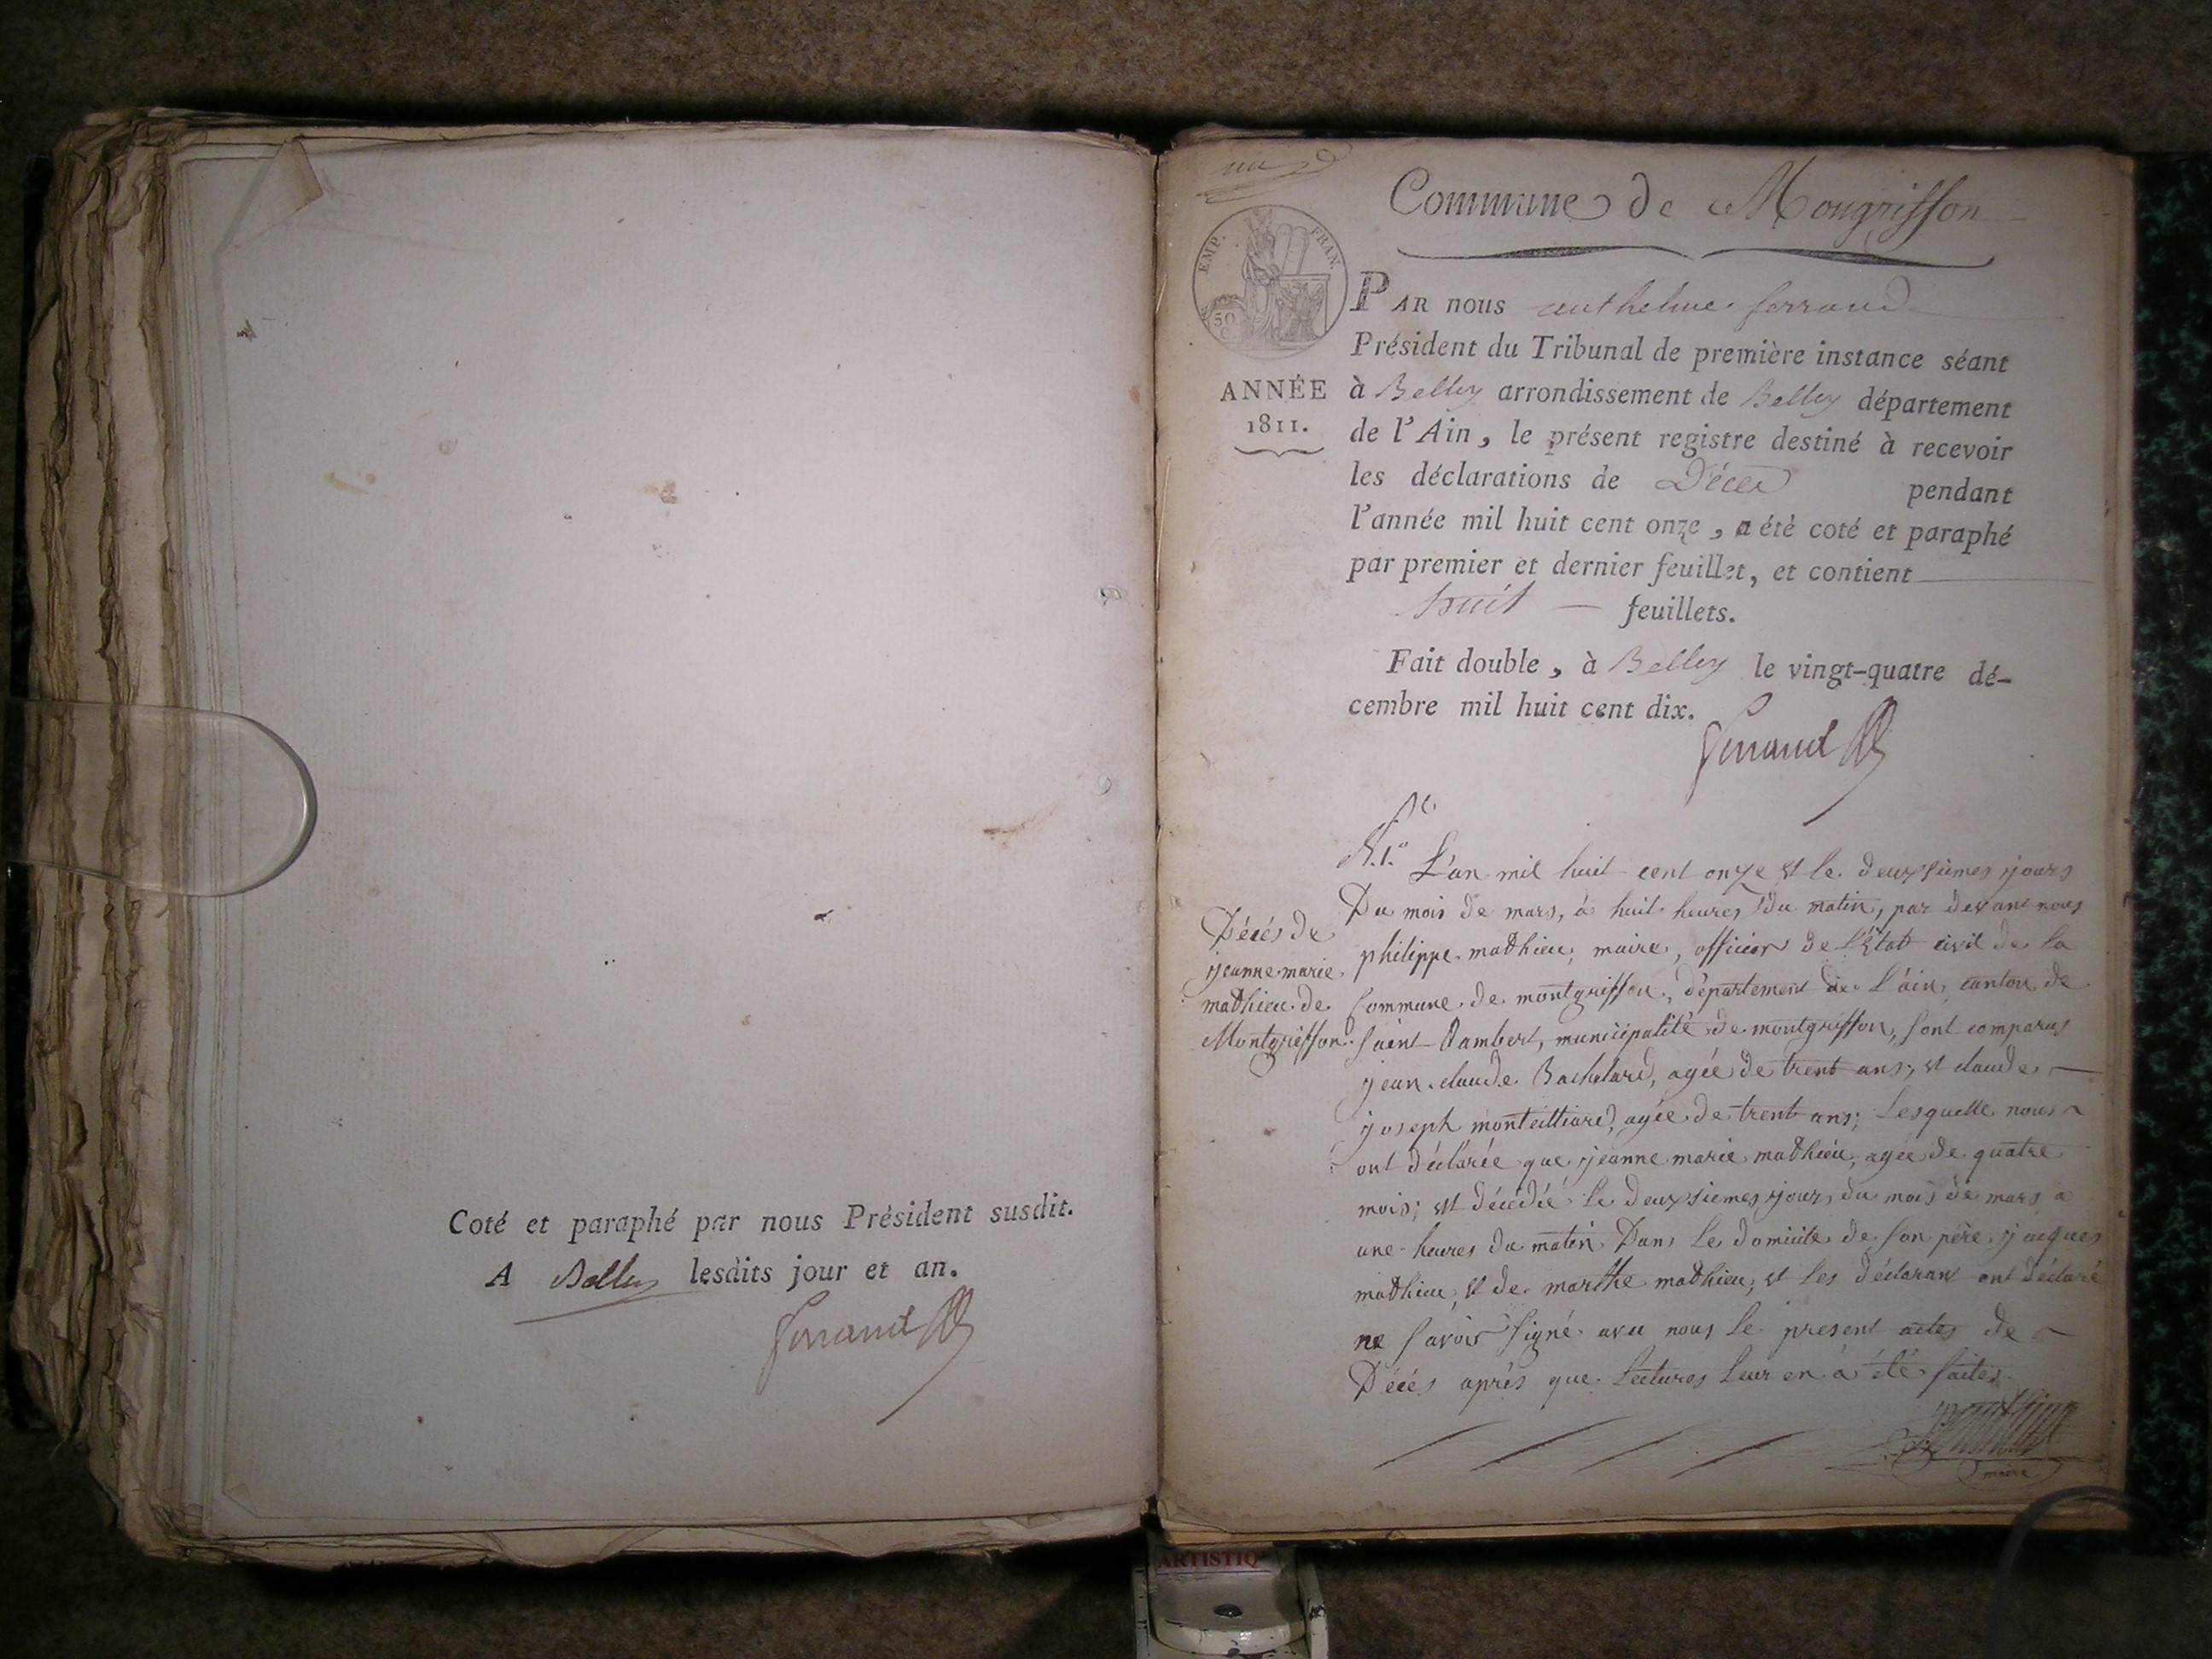 Coté et paraphé par nous Président susdit.
A Belley lesdits jour et an.
Ferrand
un
Commune de Mongriffon
EMP. FRAN.
50
C
ANNÉE
1811.
PAR nous anthelme ferrand
Président du Tribunal de première instance séant
à Belley arrondissement de Belley département
de l'Ain, le présent registre destiné à recevoir
les déclarations de Décès pendant
l'année mil huit cent onze, a été coté et paraphé
par premier et dernier feuillet, et contient
huit feuillets.
Fait double, à Belley le vingt-quatre dé-
cembre mil huit cent dix.
Ferrand
Décés de
jeanne marie
mathieu de
Montgriffon
N.1.º L'an mil huit cent onze et le deuxsiemes jours
Du mois de mars, à huit heures du matin, par devant nous
philippe mathieu, maire, officier de L'Etat civil de la
Commune de montgriffon, département de L'ain, canton de
Saint Rambert, municipalité de montgriffon, sont comparus
jean claude Bachelard, agée de trent ans; et claude
joseph monteilliard, agée de trent ans; Lesquelle nous
ont déclarée que jeanne marie mathieu, agée de quatre
mois; est décédée le deuxsiemes jour, du mois de mars a
une heures du matin Dans le domicile de son père jacques
mathieu, et de marthe mathieu, et les déclarant ont déclaré
ne savoir signé avec nous le present actes de
Décés après que Lectures Leur en à été faites
maire
ARTISTIQ